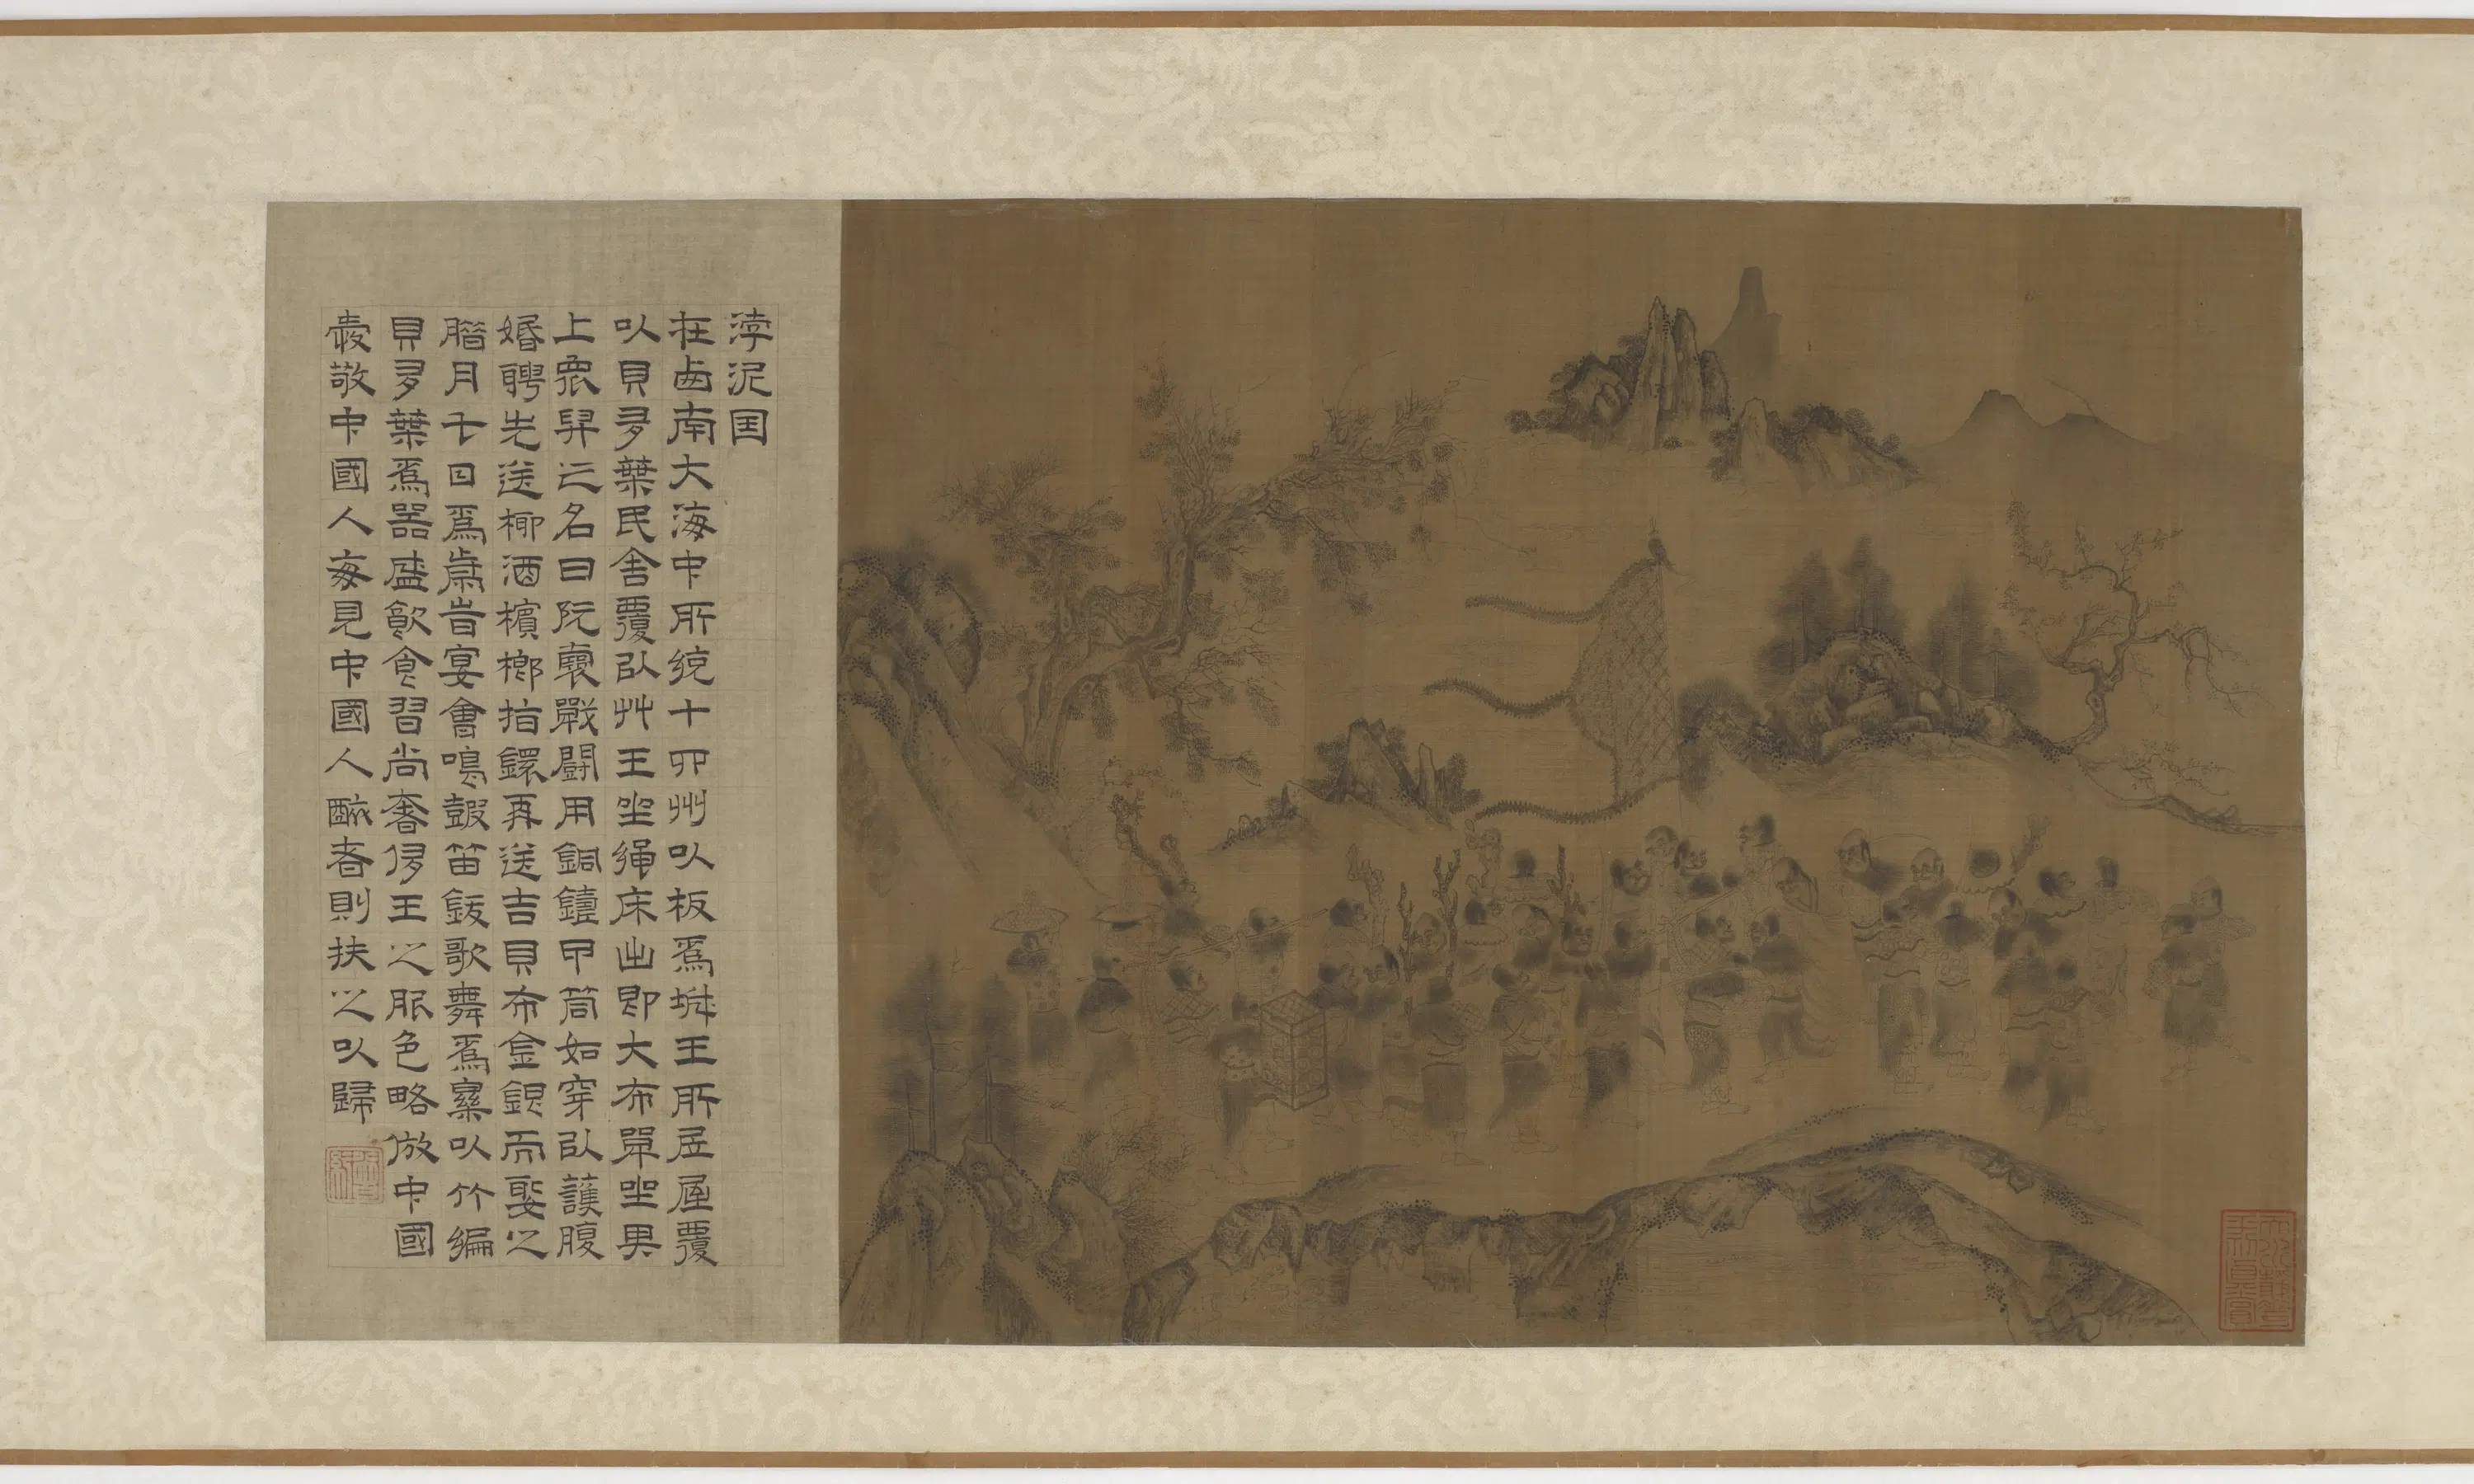 浡泥国
在西南大海中所統十四州以板爲城王所居屋覆
以貝多葉民舍覆以艸王坐繩床出即大布單坐其
上衆舁之名曰阮囊戰鬪用銅鑄甲筒如穿以護腹
婚聘先送椰酒檳榔指鐶再送吉貝布金銀而娶之
腊月七日爲歲旹宴會鳴鼓笛鈸歌舞爲樂以竹編
貝多葉爲器盛飲食習尚奢侈王之服色略倣中國
愛敬中國人每見中國人醉者則扶之以歸